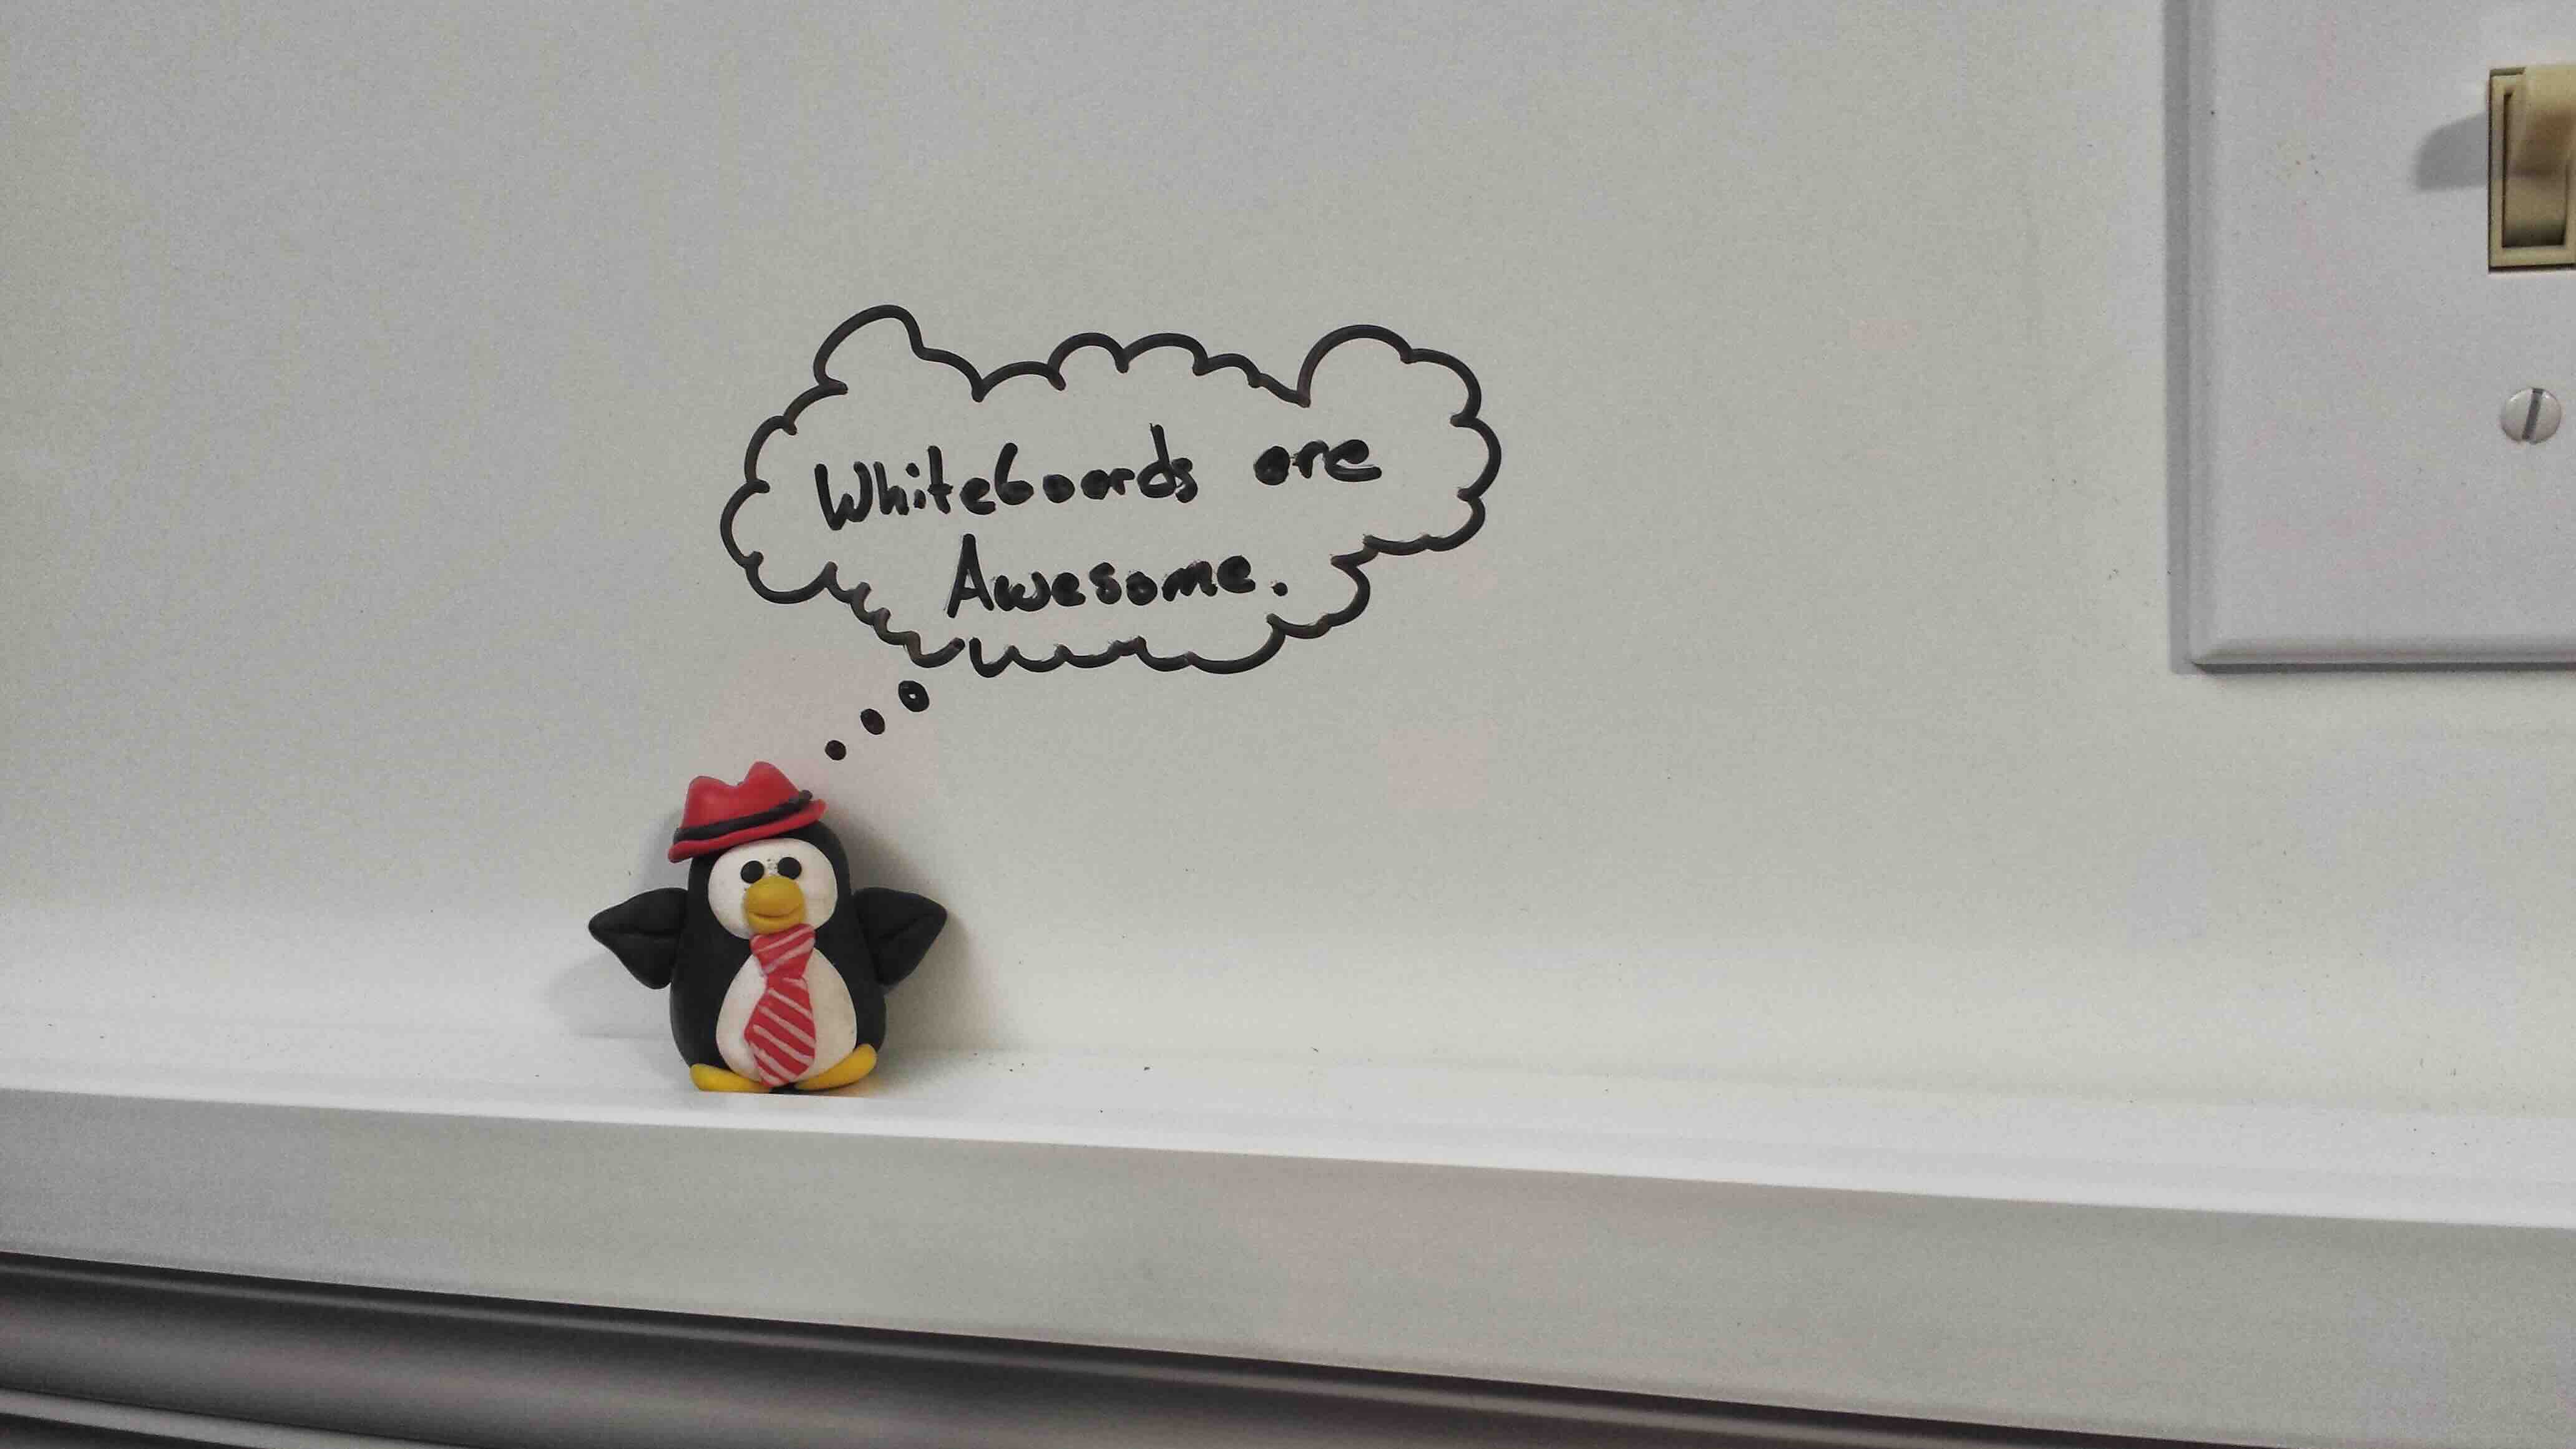 Whiteboards are
Awesome.